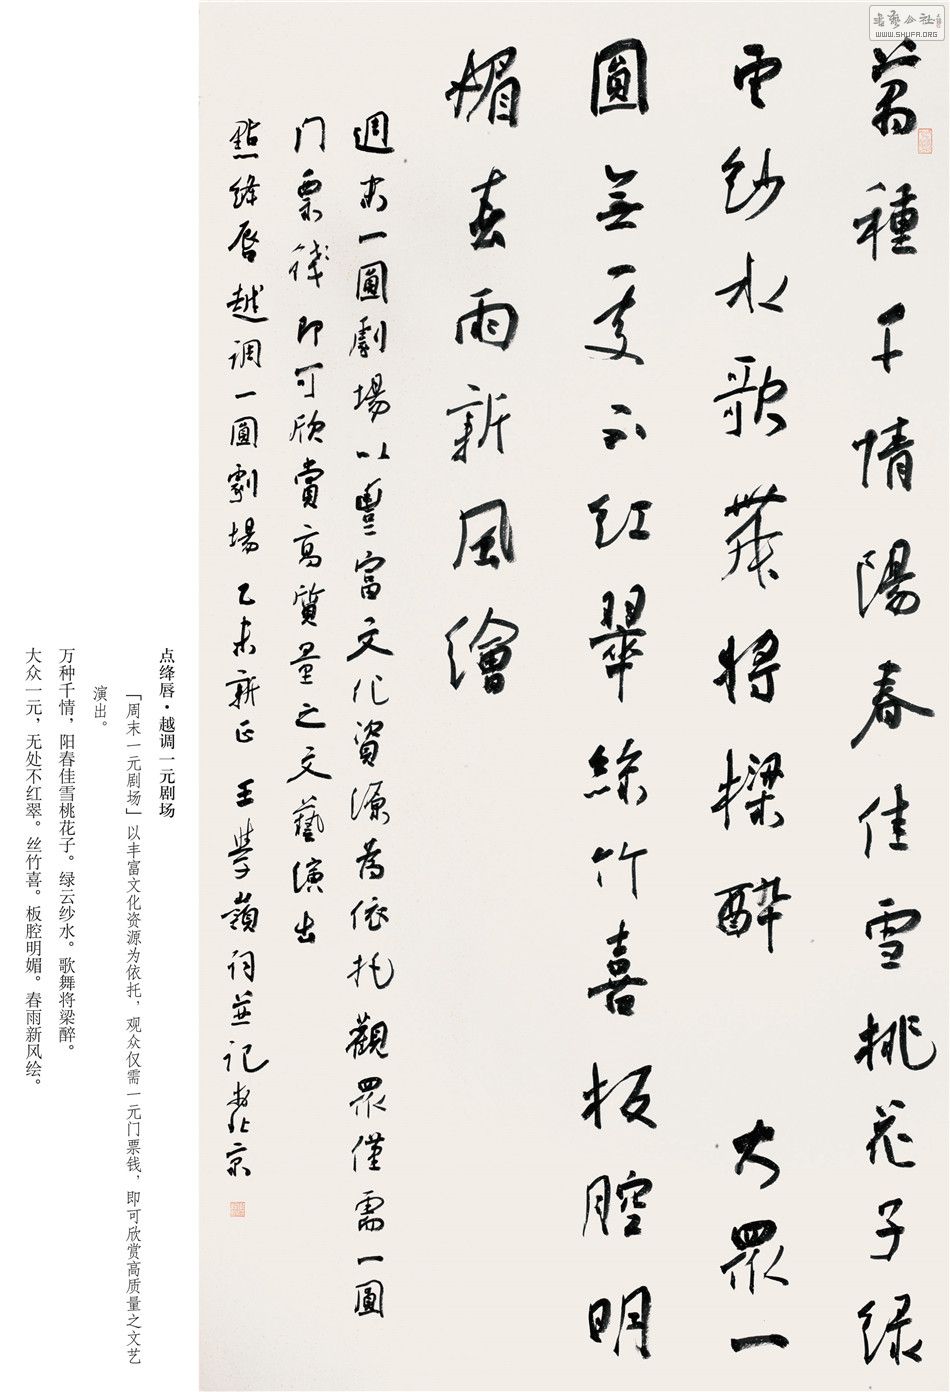 書藝公社
WWW.SHUFA.ORG
萬種千情陽春佳雪桃花子绿
雲紗水歌舞将樑醉 大眾一
圓無处不红翠絲竹喜板腔明
媚春雨新風繪
週末一圓劇場以豐富文化資源為依托觀眾僅需一圓
门票錢即可欣賞高質量之文藝演出
點絳唇越调一圓劇場 乙未新正 王學嶺词並记於北京
点绛唇·越调一元剧场
「周末一元剧场」以丰富文化资源为依托，观众仅需一元门票钱，即可欣赏高质量之文艺
演出。
万种千情，阳春佳雪桃花子。绿云纱水。歌舞将梁醉。
大众一元，无处不红翠。丝竹喜。板腔明媚。春雨新风绘。